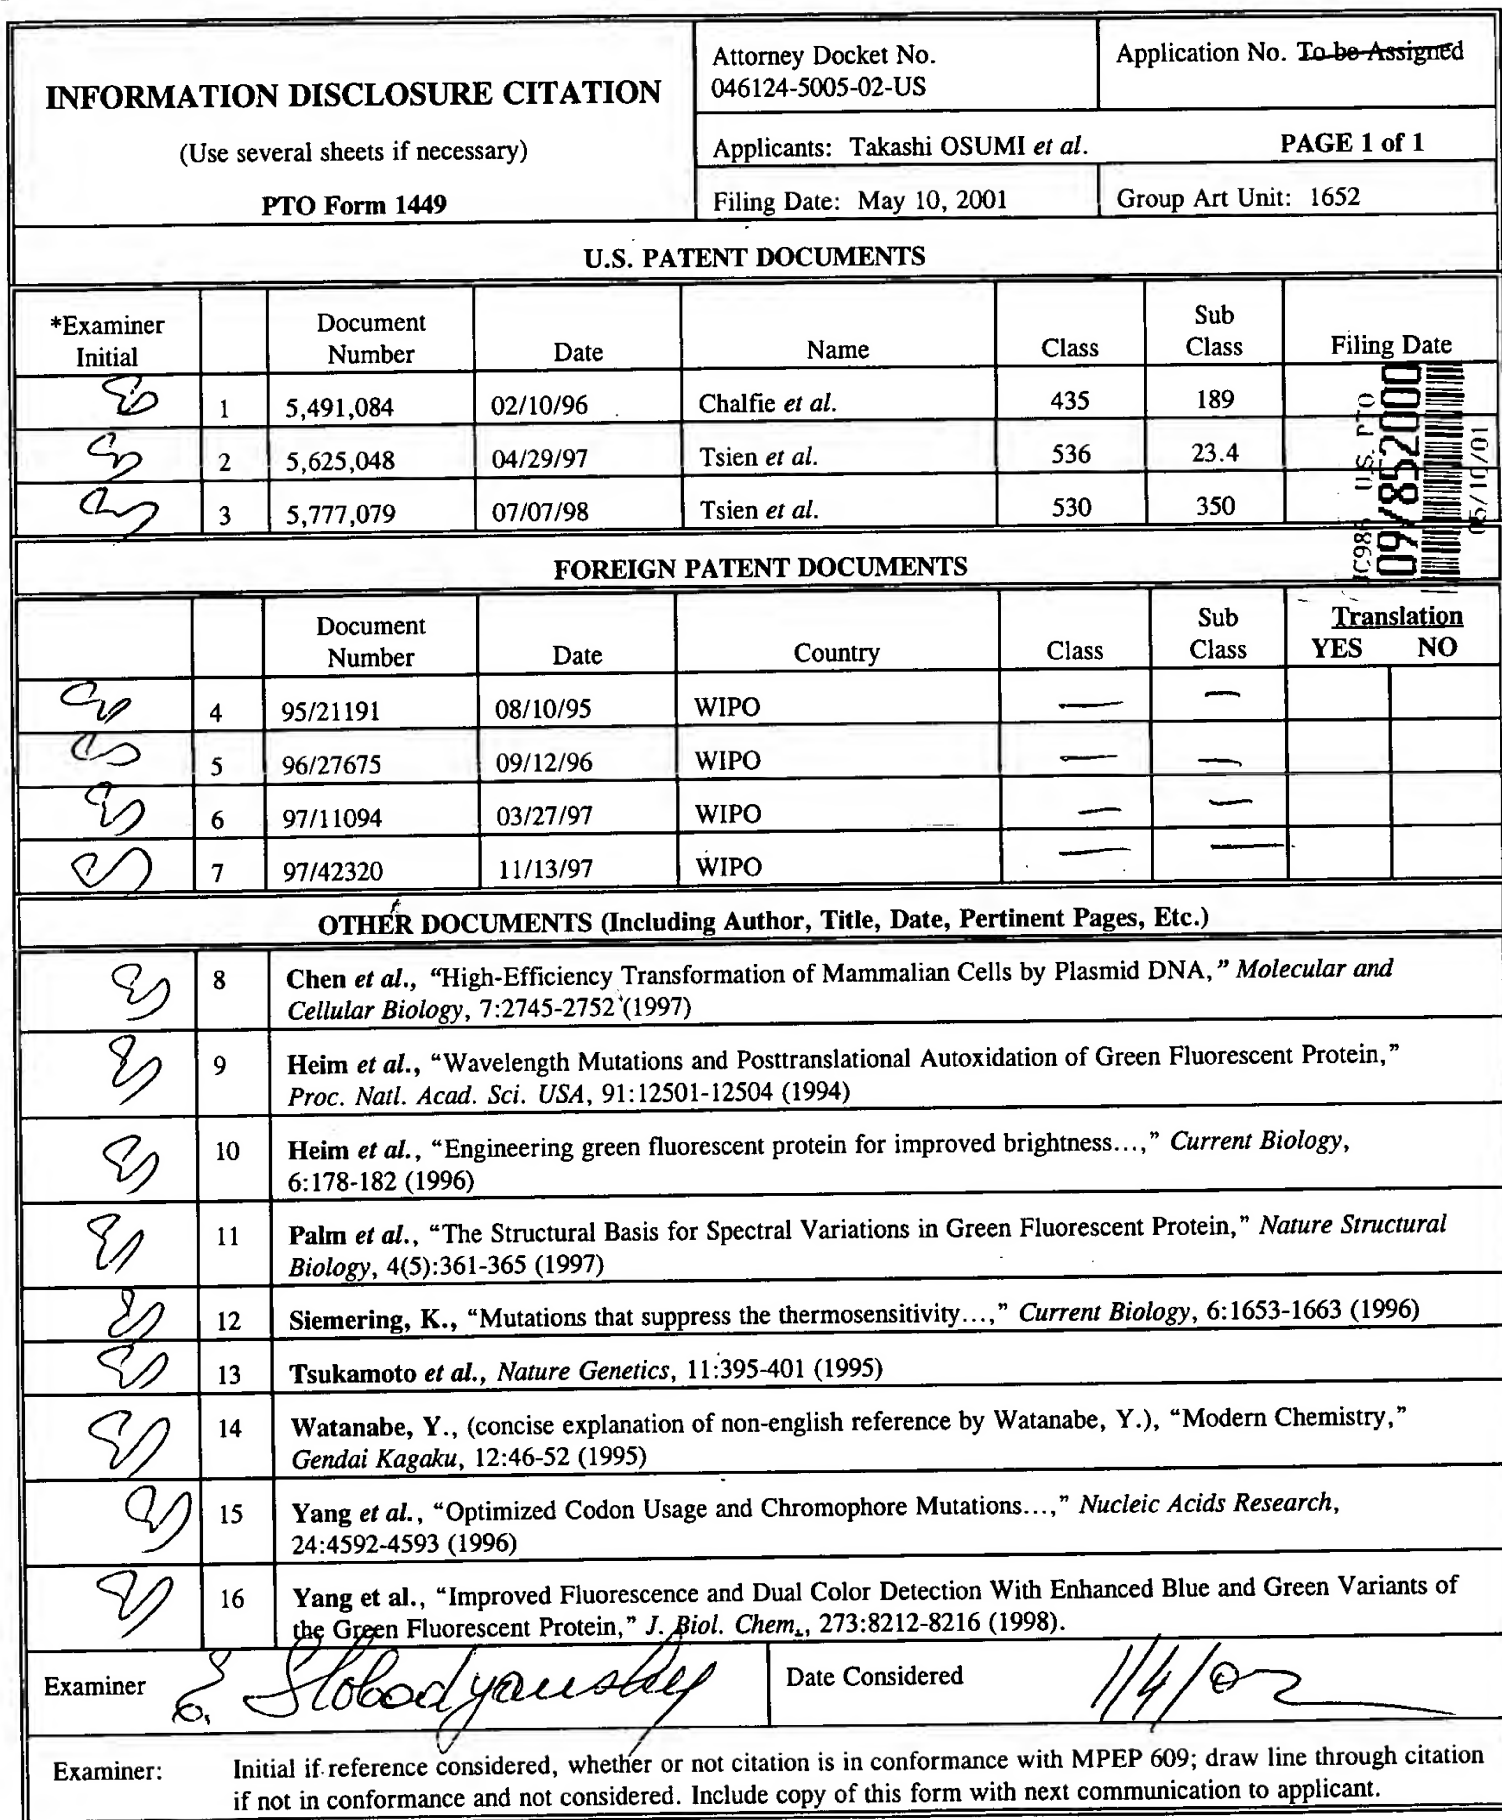 INFORMATION DISCLOSURE CITATION
(Use several sheets if necessary)
PTO Form 1449
Attorney Docket No.
046124-5005-02-US
Application No. To be Assigned
Applicants: Takashi OSUMI et al.
PAGE 1 of 1
Filing Date: May 10, 2001
Group Art Unit: 1652
U.S. PATENT DOCUMENTS
*Examiner Initial Document Number Date Name Class Sub Class Filing Date
1 5,491,084 02/10/96 Chalfie et al. 435 189
2 5,625,048 04/29/97 Tsien et al. 536 23.4
3 5,777,079 07/07/98 Tsien et al. 530 350
U.S. PTO
09/852000
05/10/01
FOREIGN PATENT DOCUMENTS
Document Number Date Country Class Sub Class Translation YES NO
4 95/21191 08/10/95 WIPO — —
5 96/27675 09/12/96 WIPO — —
6 97/11094 03/27/97 WIPO — —
7 97/42320 11/13/97 WIPO — —
OTHER DOCUMENTS (Including Author, Title, Date, Pertinent Pages, Etc.)
8 Chen et al., “High-Efficiency Transformation of Mammalian Cells by Plasmid DNA,” Molecular and
Cellular Biology, 7:2745-2752 (1997)
9 Heim et al., “Wavelength Mutations and Posttranslational Autoxidation of Green Fluorescent Protein,”
Proc. Natl. Acad. Sci. USA, 91:12501-12504 (1994)
10 Heim et al., “Engineering green fluorescent protein for improved brightness...,” Current Biology,
6:178-182 (1996)
11 Palm et al., “The Structural Basis for Spectral Variations in Green Fluorescent Protein,” Nature Structural
Biology, 4(5):361-365 (1997)
12 Siemering, K., “Mutations that suppress the thermosensitivity...,” Current Biology, 6:1653-1663 (1996)
13 Tsukamoto et al., Nature Genetics, 11:395-401 (1995)
14 Watanabe, Y., (concise explanation of non-english reference by Watanabe, Y.), “Modern Chemistry,”
Gendai Kagaku, 12:46-52 (1995)
15 Yang et al., “Optimized Codon Usage and Chromophore Mutations...,” Nucleic Acids Research,
24:4592-4593 (1996)
16 Yang et al., “Improved Fluorescence and Dual Color Detection With Enhanced Blue and Green Variants of
the Green Fluorescent Protein,” J. Biol. Chem., 273:8212-8216 (1998).
Examiner
Date Considered 1/4/02
Examiner: Initial if reference considered, whether or not citation is in conformance with MPEP 609; draw line through citation
if not in conformance and not considered. Include copy of this form with next communication to applicant.